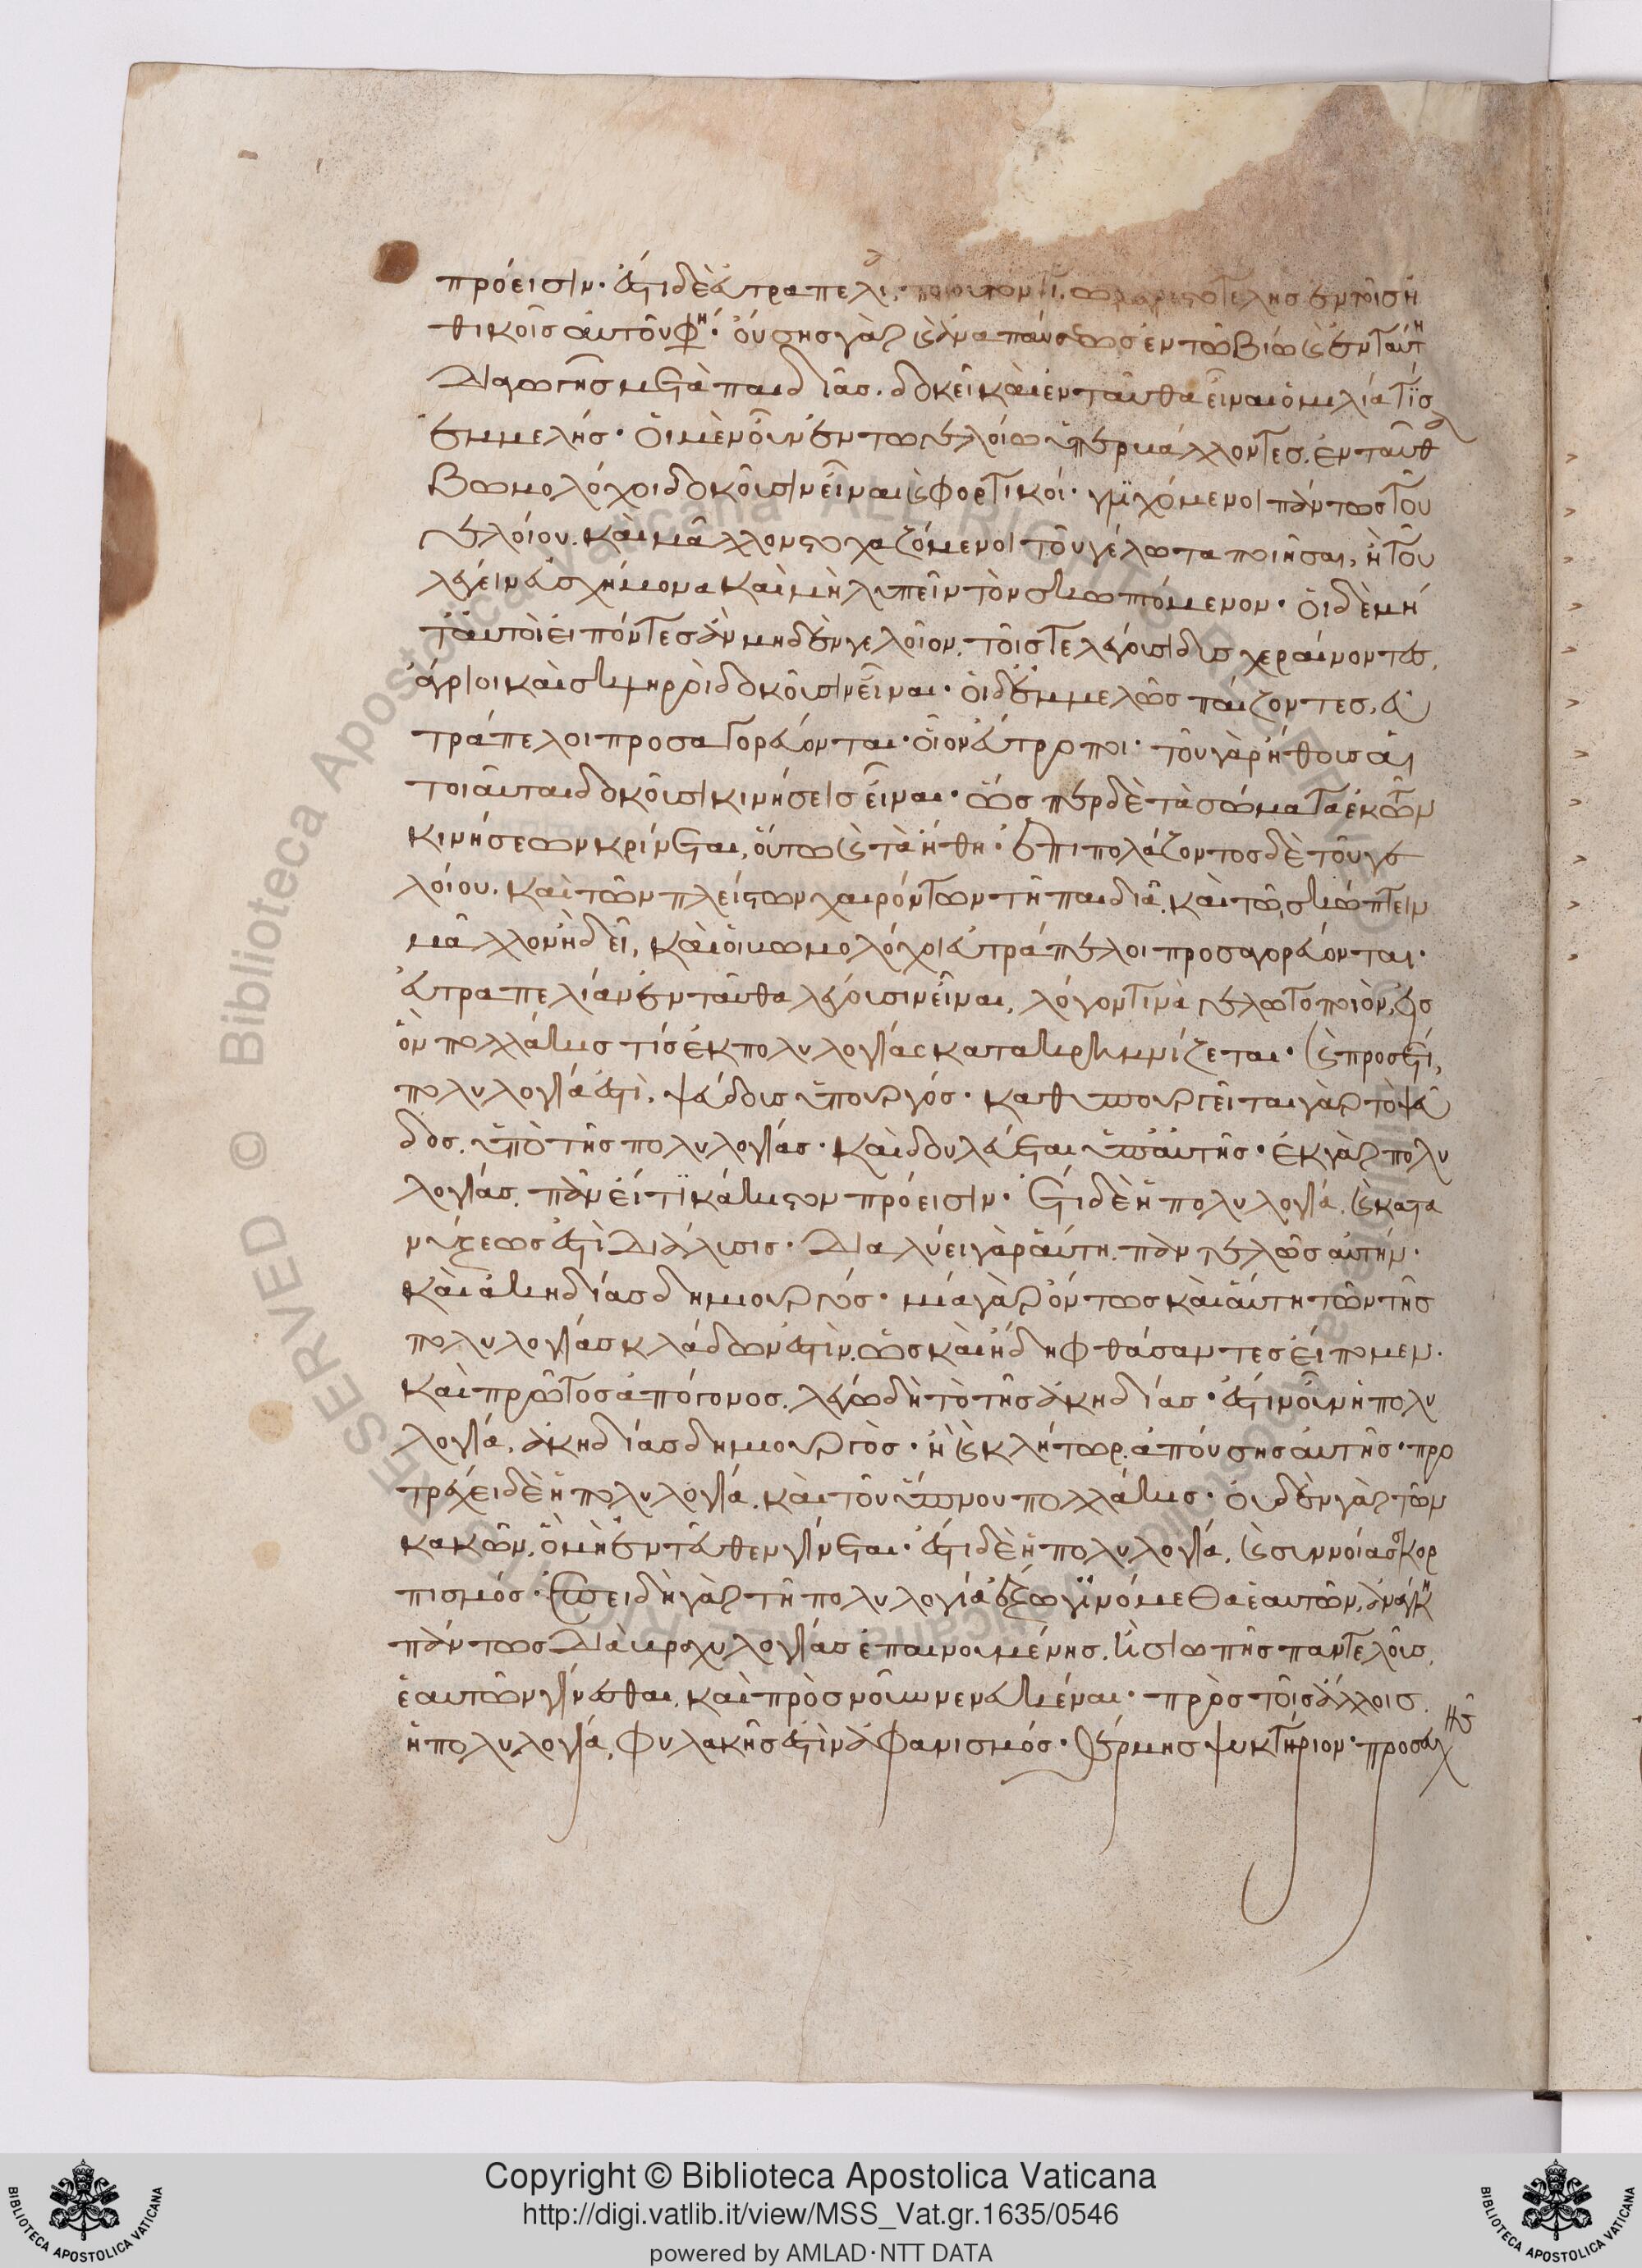 πρόεισιν· ἔστι δὲ εὐτραπελί τοιοῦτόν τι, ὡς Ἀριστοτέλης ἐν τοῖς ἠ
θικοῖς αὐτοῦ φη· οὔσης γὰρ καὶ ἀναπαύσεως ἐν τῷ βίῳ καὶ ἐν ταύτη
διαγωγῆς μετὰ παιδιᾶς. δοκεῖ καὶ ἐνταῦθα εἶναι ὁμιλία τίς
ἐμμελής· οἱ μὲν οὖν ἐν τῷ γελοίῳ ὑπερβάλλοντες. ἐνταῦθα
βωμολόχοι δοκοῦσιν εἶναι καὶ φορτικοί· γλιχόμενοι πάντως τοῦ
γελοίου. καὶ μᾶλλον στοχαζόμενοι τοῦ γέλωτα ποιῆσαι, ἢ τοῦ
λέγειν εὐσχήμονα καὶ μὴ λυπεῖν τὸν σκωπτόμενον· οἱ δὲ μή
τ' αὐτοὶ εἰπόντες ἂν μηδὲν γελοῖον. τοῖς τε λέγουσι δυσχεραίνοντες,
ἄγριοι καὶ σκληροὶ δοκοῦσιν εἶναι· οἱ δ' ἐμμελῶς παίζοντες, εὐ
τράπελοι προσαγορεύονται· οἷον εὔτροποι· τοῦ γὰρ ἤθους αἱ
τοιαῦται δοκοῦσι κινήσεις εἶναι· ὥσπερ δὲ τὰ σώματα ἐκ τῶν
κινήσεων κρίνεται, οὕτω καὶ τὰ ἤθη· ἐπιπολάζοντος δὲ τοῦ γε
λοίου. καὶ τῶν πλείστων χαιρόντων τῇ παιδιᾷ. καὶ τῷ σκώπτειν
μᾶλλον ἢ δεῖ, καὶ οἱ βωμολόχοι εὐτράπελοι προσαγορεύονται·
εὐτραπελίαν ἐνταῦθα λέγουσιν εἶναι, λόγον τινὰ γελωτοποιὸν, εἰς
ὃν πολλάκις τίς ἐκ πολυλογίας κατακρημνίζεται· καὶ πρὸς ἔτι,
πολυλογία ἐστὶ, ψεύδους ὑπουργός· καθυπουργεῖται γὰρ τὸ ψεῦ
δος. ὑπὸ τῆς πολυλογίας· καὶ δουλεύεται ὑπ' αὐτῆς· ἐκ γὰρ πολυ
λογίας. πᾶν εἴ τι κάκιστον πρόεισιν· ἔτι δὲ ἡ πολυλογία. καὶ κατα
νύξεώς ἐστι διάλυσις· διαλύει γὰρ αὕτη. παντελῶς αὐτήν·
καὶ ἀκηδίας δημιουργός· μία γὰρ ὄντως καὶ αὕτη τῶν τῆς
πολυλογίας κλάδων ἐστὶν. ὡς καὶ ἤδη φθάσαντες εἴπομεν.
καὶ πρῶτος ἀπόγονος. λέγω δὴ τὸ τῆς ἀκηδίας· ἔστιν οὖν ἡ πολυ
λογία, ἀκηδίας δημιουργὸς· ἢ καὶ κλήτωρ. ἀπούσης αὐτῆς· προ
τρέχει δὲ ἡ πολυλογία. καὶ τοῦ ὕπνου πολλάκις· οὐδὲν γὰρ τῶν
κακῶν, ὃ μὴ ἐντεῦθεν γίνεται· ἔστι δὲ ἡ πολυλογία, καὶ συννοίας σκορ
πισμός· ἐπειδὴ γὰρ τῇ πολυλογίᾳ ἔξω γινόμεθα ἑαυτῶν, ἀνάγκη
πάντως διὰ βραχυλογίας ἐπαινουμένης. ἢ σιωπῆς παντελοῦς,
ἑαυτῶν γίνεσθαι. καὶ πρὸς νοῦν νενευκέναι· πρὸς τοῖς ἄλλοις.
ἡ πολυλογία, φυλακῆς ἐστὶν ἀφανισμός· θέρμης ψυκτήριον· προσευχῆς